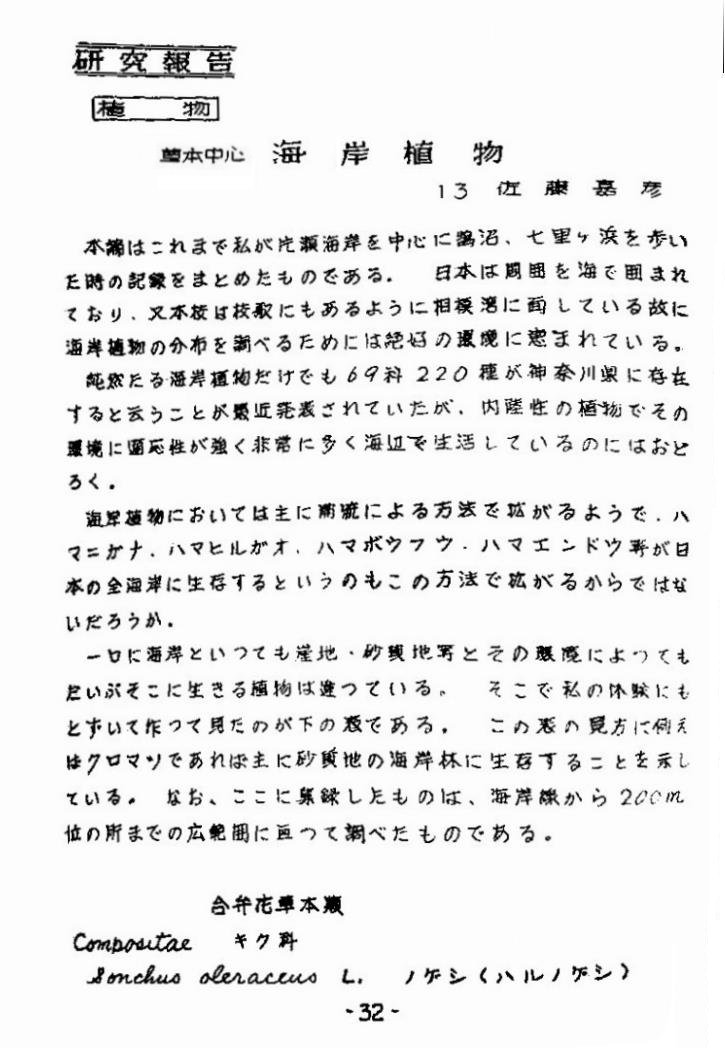 研究報告
植　物
草本中心　海岸植物
13 佐藤嘉彦
本稿はこれまで私が片瀬海岸を中心に鵠沼、七里ヶ浜を歩い
た時の記録をまとめたものである。　日本は周囲を海で囲まれ
ており、又本校は校歌にもあるように相模湾に面している故に
海岸植物の分布を調べるためには絶好の環境に恵まれている。
純然たる海岸植物だけでも69科 220 種が神奈川県に存在
すると云うことが最近発表されていたが、内陸性の植物でその
環境に適応性が強く非常に多く海辺で生活しているのにはおど
ろく。
海岸植物においては主に海流による方法で拡がるようで、ハ
マニガナ、ハマヒルガオ、ハマボウフウ、ハマエンドウ等が日
本の全海岸に生存するというのもこの方法で拡がるからではな
いだろうか。
一口に海岸といつても崖地・砂質地等とその環境によつても
だいぶそこに生きる植物は違つている。　そこで私の体験にも
とずいて作つて見たのが下の表である。　この表の見方は例え
ばクロマツであれば主に砂質地の海岸林に生存することを示し
ている。　なお、ここに集録したものは、海岸線から 200m
位の所までの広範囲に亘つて調べたものである。
合弁花草本類
Compositae　キク科
Sonchus oleraceus L.　ノゲシ(ハルノゲシ)
-32-